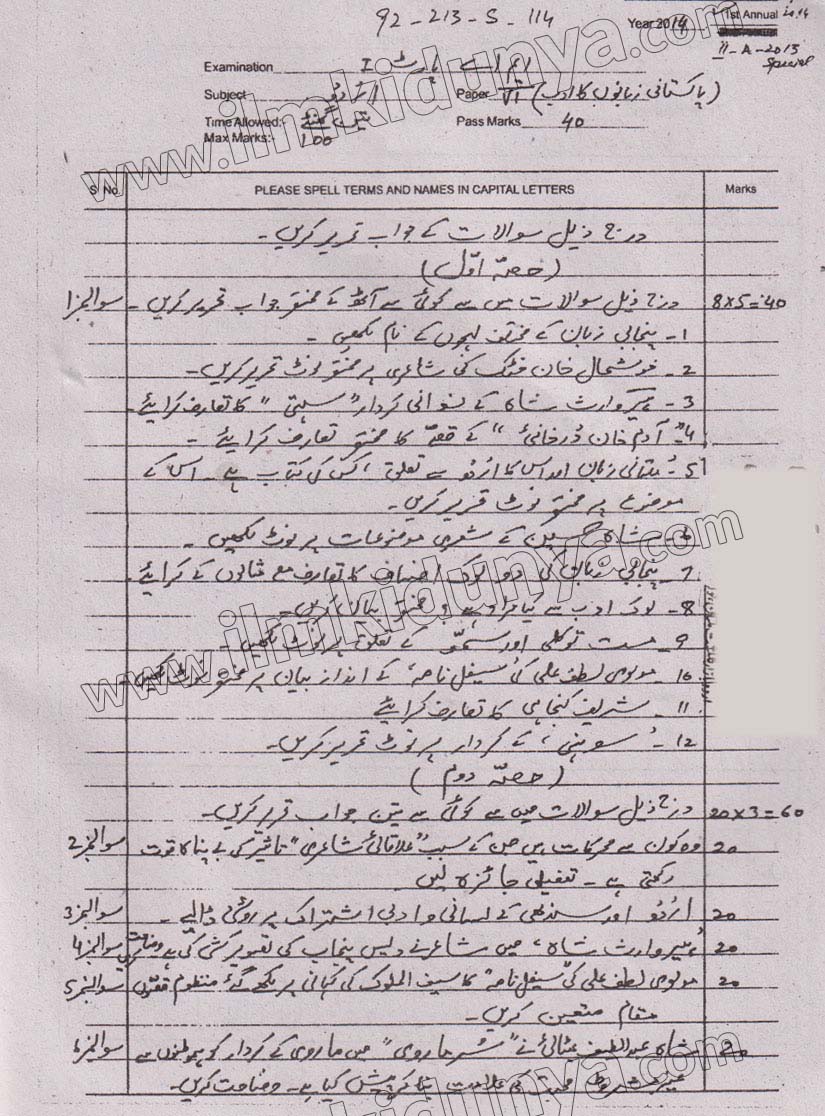 92-213-S-114
Year 2014 1st Annual 2014
II-A-2013 Special
Examination ایم اے پارٹ I
Subject اردو Paper VI (پاکستانی زبانوں کا ادب)
Time Allowed:- تین گھنٹے Pass Marks 40
Max Marks:- 100
S. No. PLEASE SPELL TERMS AND NAMES IN CAPITAL LETTERS Marks
درج ذیل سوالات کے جواب تحریر کریں۔
(حصہ اول)
سوال نمبر 1 درج ذیل سوالات میں سے کوئی سے آٹھ کے مختصر جواب تحریر کریں۔ 8x5=40
1۔ پنجابی زبان کے مختلف لہجوں کے نام لکھیں۔
2۔ خوشحال خان خٹک کی شاعری پر مختصر نوٹ تحریر کریں۔
3۔ ہیر وارث شاہ کے نسوانی کردار "سہتی" کا تعارف کرائیے۔
4۔ "آدم خان درخانئی" کے قصہ کا مختصر تعارف کرائیے۔
5۔ ملتانی زبان اور اس کا اردو سے تعلق، کس کی کتاب ہے۔ اس کے
موضوع پر مختصر نوٹ تحریر کریں۔
6۔ شاہ حسین کے شعری موضوعات پر نوٹ لکھیں۔
7۔ پنجابی زبان کی دو لوک اصناف کا تعارف مع مثالوں کے کرائیے۔
8۔ لوک ادب سے کیا مراد ہے؟ مختصر بیان کریں۔
9۔ مست توکلی اور سمو کے تعلق پر نوٹ لکھیں۔
10۔ مولوی لطف علی کی 'سیفل نامہ' کے انداز بیان پر مختصر نوٹ لکھیں
11۔ شریف کنجاہی کا تعارف کرائیے
12۔ 'سوہنی' کے کردار پر نوٹ تحریر کریں۔
(حصہ دوم)
درج ذیل سوالات میں سے کوئی سے تین جواب تحریر کریں۔ 20x3=60
سوال نمبر 2 وہ کون سے محرکات ہیں جن کے سبب "علاقائی شاعری" تاثیر کی بے پناہ قوت 20
رکھتی ہے۔ تفصیلی جائزہ لیں
سوال نمبر 3 اردو اور سندھی کے لسانی و ادبی اشتراک پر روشنی ڈالیے۔ 20
سوال نمبر 4 'ہیر وارث شاہ' میں شاعر نے دیس پنجاب کی تصویر کشی کی ہے وضاحت کریں 20
سوال نمبر 5 مولوی لطف علی کی 'سیفل نامہ' کا سیف الملوک کی کہانی پر لکھے گئے منظوم قصوں 20
مقام متعین کریں۔
سوال نمبر 6 شاہ عبداللطیف بھٹائی نے "سُر ماروی" میں ماروی کے کردار کو ہموطنوں سے 20
غیر مشروط محبت کی علامت بنا کر پیش کیا ہے۔ وضاحت کریں۔
www.ilmkidunya.com
www.ilmkidunya.com
www.ilmkidunya.com